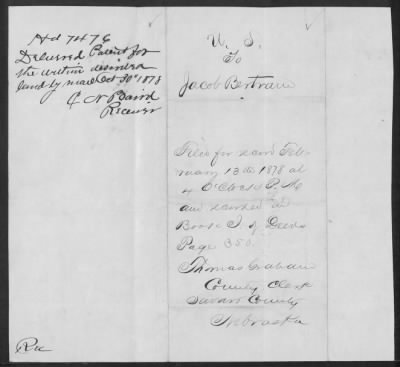 Hd 7476
Delivered Patent for
the within described
land by mail Oct 30th 1878
Receiver
U. S.
To
Jacob Bertram
Filed for record Feb-
ruary 13th 1878 at
4 O'Clock P. M
and recorded in
Book I. of Deeds
Page 350.
Thomas Graham
County Clerk
County
Nebraska
Rec